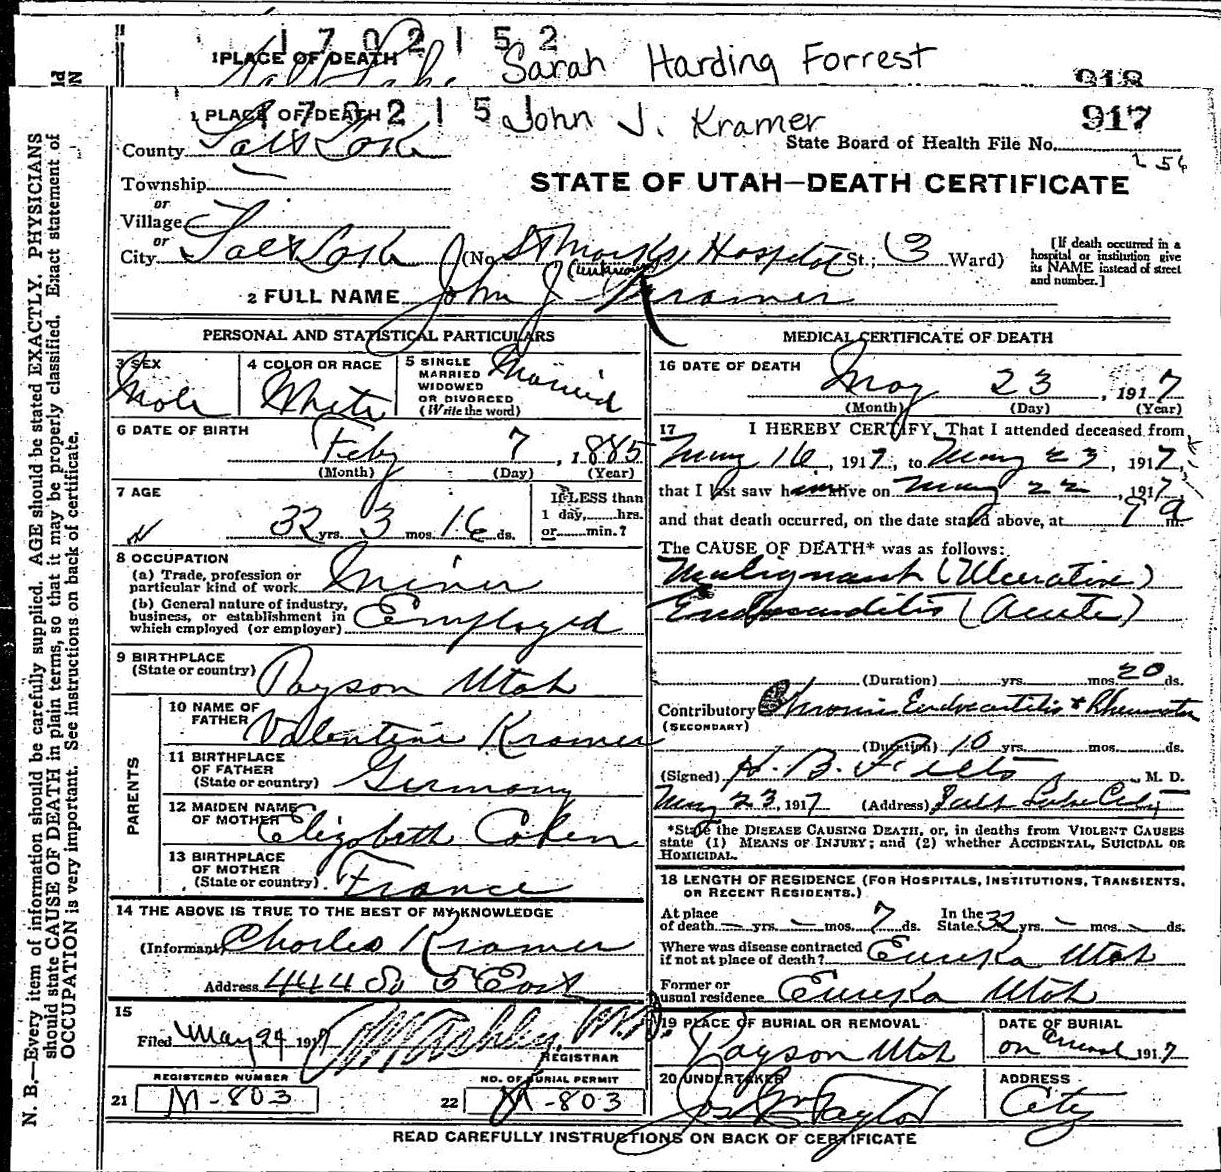 1702152
1 PLACE OF DEATH
Salt Lake
Sarah Harding Forrest
918
170215
1 PLACE OF DEATH
John J. Kramer
917
State Board of Health File No.
256
County Salt Lake
STATE OF UTAH—DEATH CERTIFICATE
Township
or
Village
or
City Salt Lake (No. St Marks Hospital St.; 3 Ward)
[If death occurred in a hospital or institution give its NAME instead of street and number.]
(unknown)
2 FULL NAME John J. Kramer
PERSONAL AND STATISTICAL PARTICULARS
3 SEX Male
4 COLOR OR RACE White
5 SINGLE MARRIED WIDOWED OR DIVORCED (Write the word) Married
6 DATE OF BIRTH
Feby 7, 1885
(Month) (Day) (Year)
7 AGE
32 yrs. 3 mos. 16 ds.
If LESS than 1 day,......hrs. or......min.?
8 OCCUPATION
(a) Trade, profession or particular kind of work Miner
(b) General nature of industry, business, or establishment in which employed (or employer) Employed
9 BIRTHPLACE (State or country) Payson Utah
PARENTS
10 NAME OF FATHER Valentine Kramer
11 BIRTHPLACE OF FATHER (State or country) Germany
12 MAIDEN NAME OF MOTHER Elizabeth
13 BIRTHPLACE OF MOTHER (State or country) France
14 THE ABOVE IS TRUE TO THE BEST OF MY KNOWLEDGE
(Informant) Charles Kramer
Address 444 So 5 East
15
Filed May 24 1917 Ashley, M.D.
REGISTRAR
REGISTERED NUMBER
21 M-803
NO. OF BURIAL PERMIT
22 M-803
MEDICAL CERTIFICATE OF DEATH
16 DATE OF DEATH
May 23, 1917
(Month) (Day) (Year)
17 I HEREBY CERTIFY, That I attended deceased from
May 16, 1917, to May 23, 1917,
that I last saw him alive on May 22, 1917
and that death occurred, on the date stated above, at 7 a m
The CAUSE OF DEATH* was as follows:
Malignant (Ulcerative)
Endocarditis (Acute)
(Duration) yrs. mos. 20 ds.
Contributory (SECONDARY) Chronic Endocarditis + Rheumatism
(Duration) 10 yrs. mos. ds.
(Signed) H. B. M. D.
May 23, 1917 (Address) Salt Lake City
*State the DISEASE CAUSING DEATH, or, in deaths from VIOLENT CAUSES
state (1) MEANS OF INJURY; and (2) whether ACCIDENTAL, SUICIDAL OR
HOMICIDAL.
18 LENGTH OF RESIDENCE (FOR HOSPITALS, INSTITUTIONS, TRANSIENTS, OR RECENT RESIDENTS.)
At place of death — yrs. — mos. 7 ds. In the State 32 yrs. — mos. — ds.
Where was disease contracted if not at place of death? Eureka Utah
Former or usual residence Eureka Utah
19 PLACE OF BURIAL OR REMOVAL
Payson Utah
DATE OF BURIAL
on 1917
20 UNDERTAKER
Jos Wm Taylor
ADDRESS
City
READ CAREFULLY INSTRUCTIONS ON BACK OF CERTIFICATE
N. B.—Every item of information should be carefully supplied. AGE should be stated EXACTLY. PHYSICIANS
should state CAUSE OF DEATH in plain terms, so that it may be properly classified. Exact statement of
OCCUPATION is very important. See instructions on back of certificate.